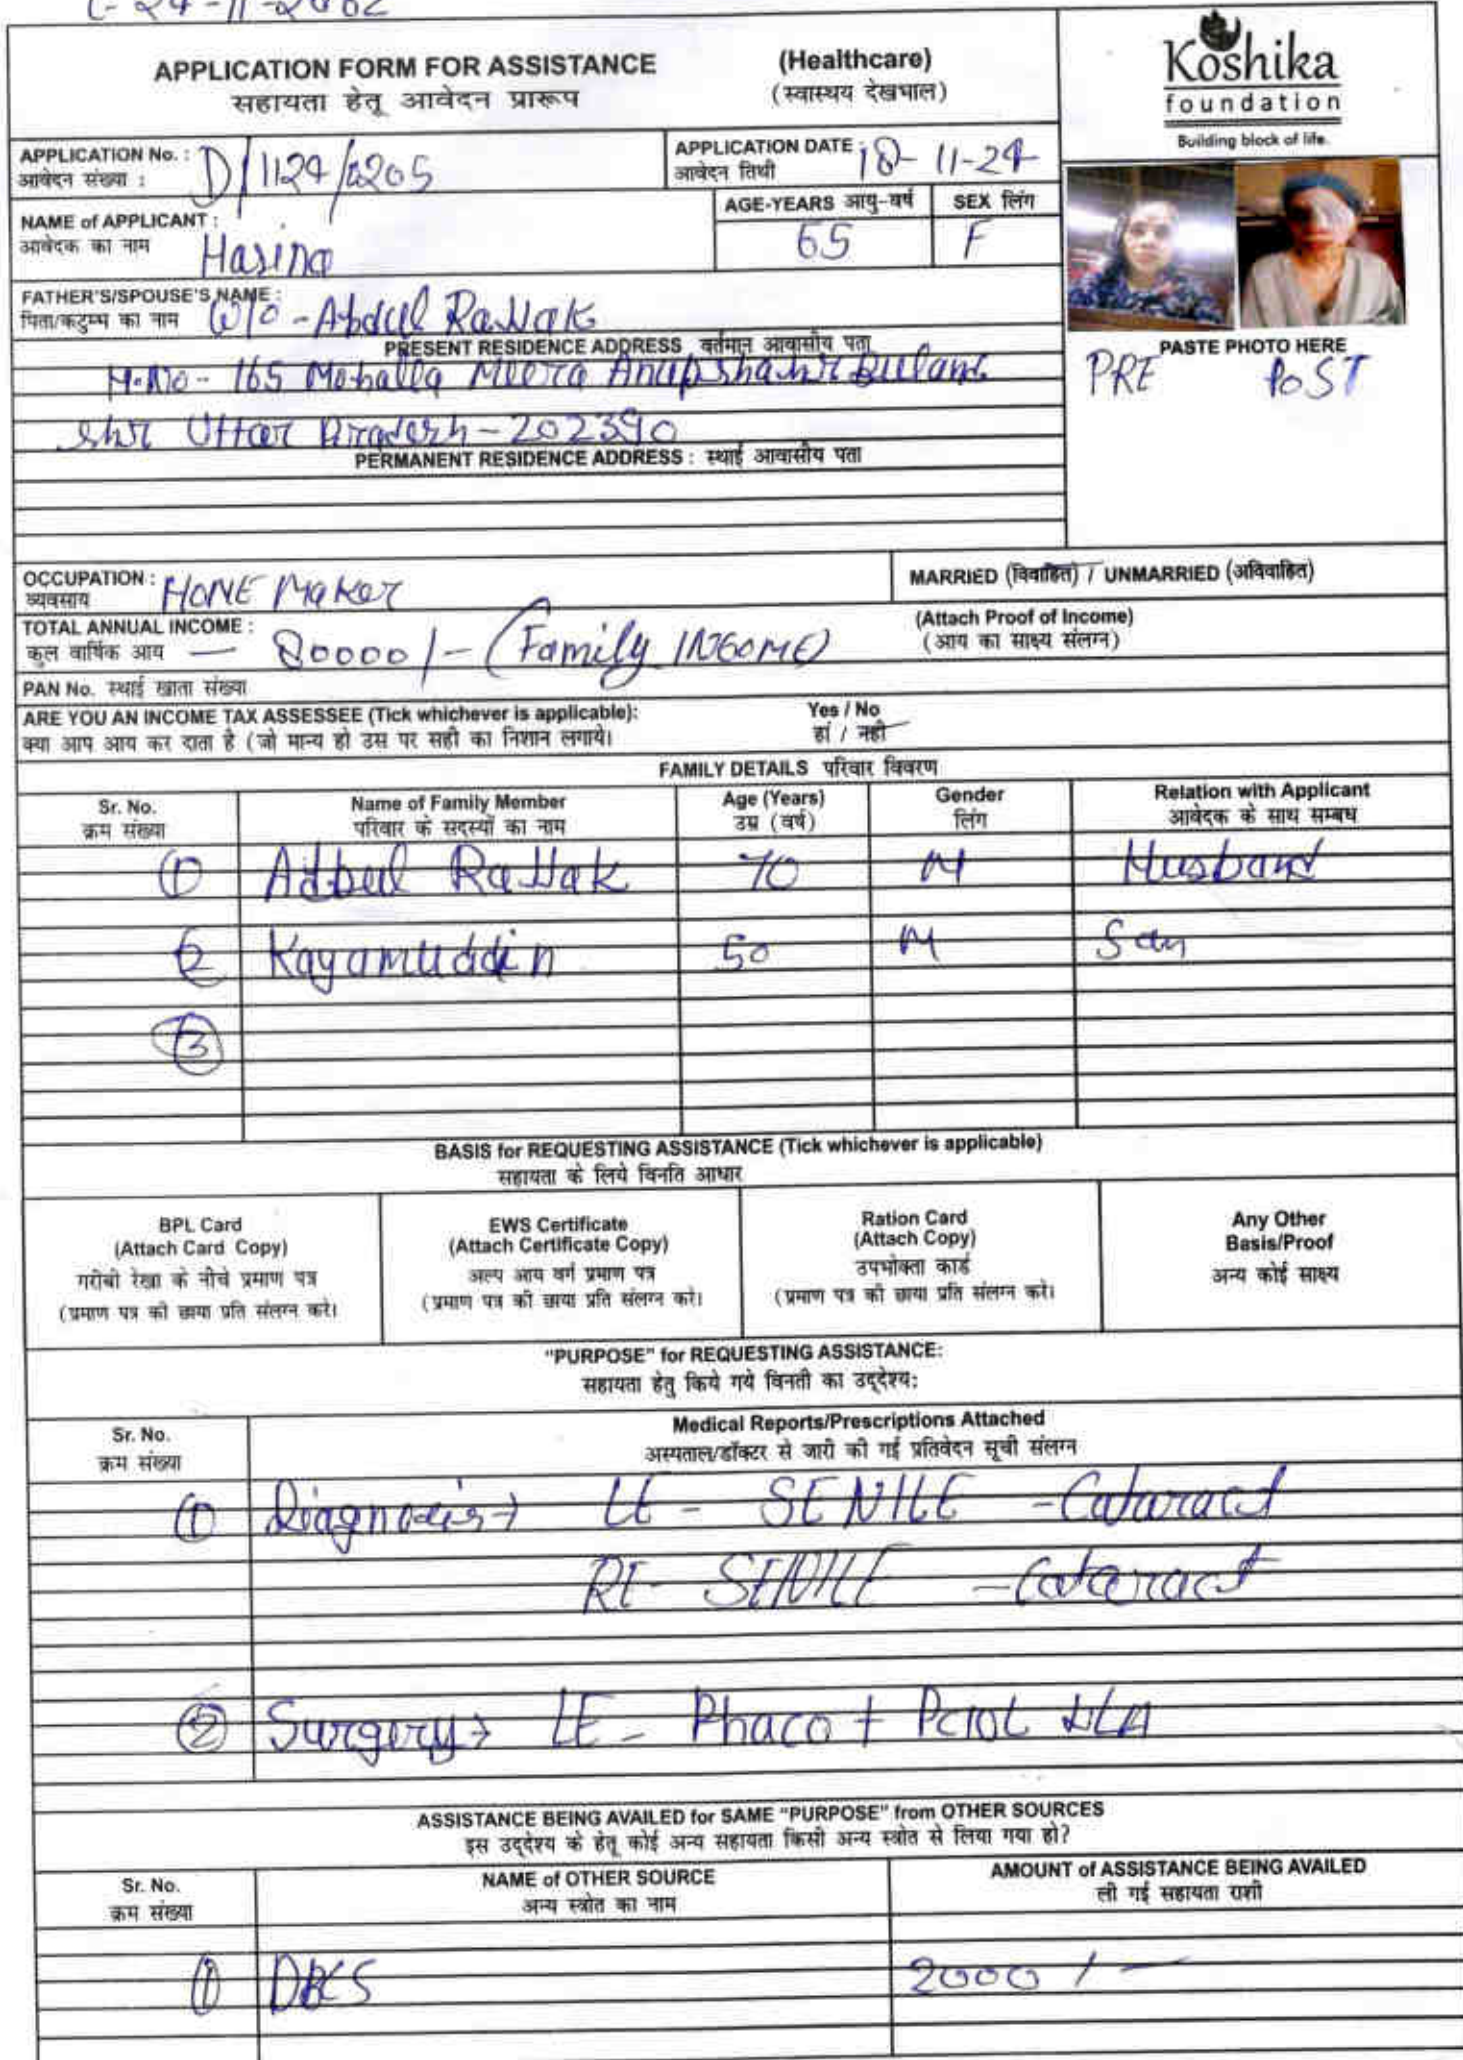 APPLICATION FORM FOR ASSISTANCE
सहायता हेतू आवेदन प्रारूप
(Healthcare)
(स्वास्थय देखभाल)
Koshika
foundation
Building block of life.
APPLICATION No. : D/1124/0205
आवेदन संख्या :
APPLICATION DATE : 18-11-24
आवेदन तिथी
NAME of APPLICANT :
आवेदक का नाम Hasina
AGE-YEARS आयु-वर्ष
65
SEX लिंग
F
FATHER'S/SPOUSE'S NAME :
पिता/कटुम्भ का नाम W/o - Abdul Razzak
PRESENT RESIDENCE ADDRESS वर्तमान आवासीय पता
H.No - 165 Mohalla Meera Anupshahr Buland
shr Uttar Pradesh - 202390
PASTE PHOTO HERE
PRE POST
PERMANENT RESIDENCE ADDRESS : स्थाई आवासीय पता
OCCUPATION : HOME Maker
व्यवसाय
MARRIED (विवाहित) / UNMARRIED (अविवाहित)
TOTAL ANNUAL INCOME :
कुल वार्षिक आय — 80000/- (Family INCOME)
(Attach Proof of Income)
(आय का साक्ष्य संलग्न)
PAN No. स्थाई खाता संख्या
ARE YOU AN INCOME TAX ASSESSEE (Tick whichever is applicable): Yes / No
क्या आप आय कर दाता है (जो मान्य हो उस पर सही का निशान लगाये। हां / नही
FAMILY DETAILS परिवार विवरण
Sr. No. Name of Family Member Age (Years) Gender Relation with Applicant
क्रम संख्या परिवार के सदस्यों का नाम उम्र (वर्ष) लिंग आवेदक के साथ सम्बध
1 Adbul Razzak 70 M Husband
2 Kayamuddin 50 M Son
3
BASIS for REQUESTING ASSISTANCE (Tick whichever is applicable)
सहायता के लिये विनति आधार
BPL Card
(Attach Card Copy)
गरीबी रेखा के नीचे प्रमाण पत्र
(प्रमाण पत्र की छाया प्रति संलग्न करे।
EWS Certificate
(Attach Certificate Copy)
अल्प आय वर्ग प्रमाण पत्र
(प्रमाण पत्र की छाया प्रति संलग्न करे।
Ration Card
(Attach Copy)
उपभोक्ता कार्ड
(प्रमाण पत्र की छाया प्रति संलग्न करे।
Any Other
Basis/Proof
अन्य कोई साक्ष्य
"PURPOSE" for REQUESTING ASSISTANCE:
सहायता हेतु किये गये विनती का उद्देश्य:
Sr. No. Medical Reports/Prescriptions Attached
क्रम संख्या अस्पताल/डॉक्टर से जारी की गई प्रतिवेदन सूची संलग्न
1 Diagnosis → LE - SENILE - Cataract
RE - SENILE - Cataract
2 Surgery → LE - Phaco + PCIOL
ASSISTANCE BEING AVAILED for SAME "PURPOSE" from OTHER SOURCES
इस उद्देश्य के हेतू कोई अन्य सहायता किसी अन्य स्त्रोत से लिया गया हो?
Sr. No. NAME of OTHER SOURCE AMOUNT of ASSISTANCE BEING AVAILED
क्रम संख्या अन्य स्त्रोत का नाम ली गई सहायता राशी
1 DBCS 2000/-